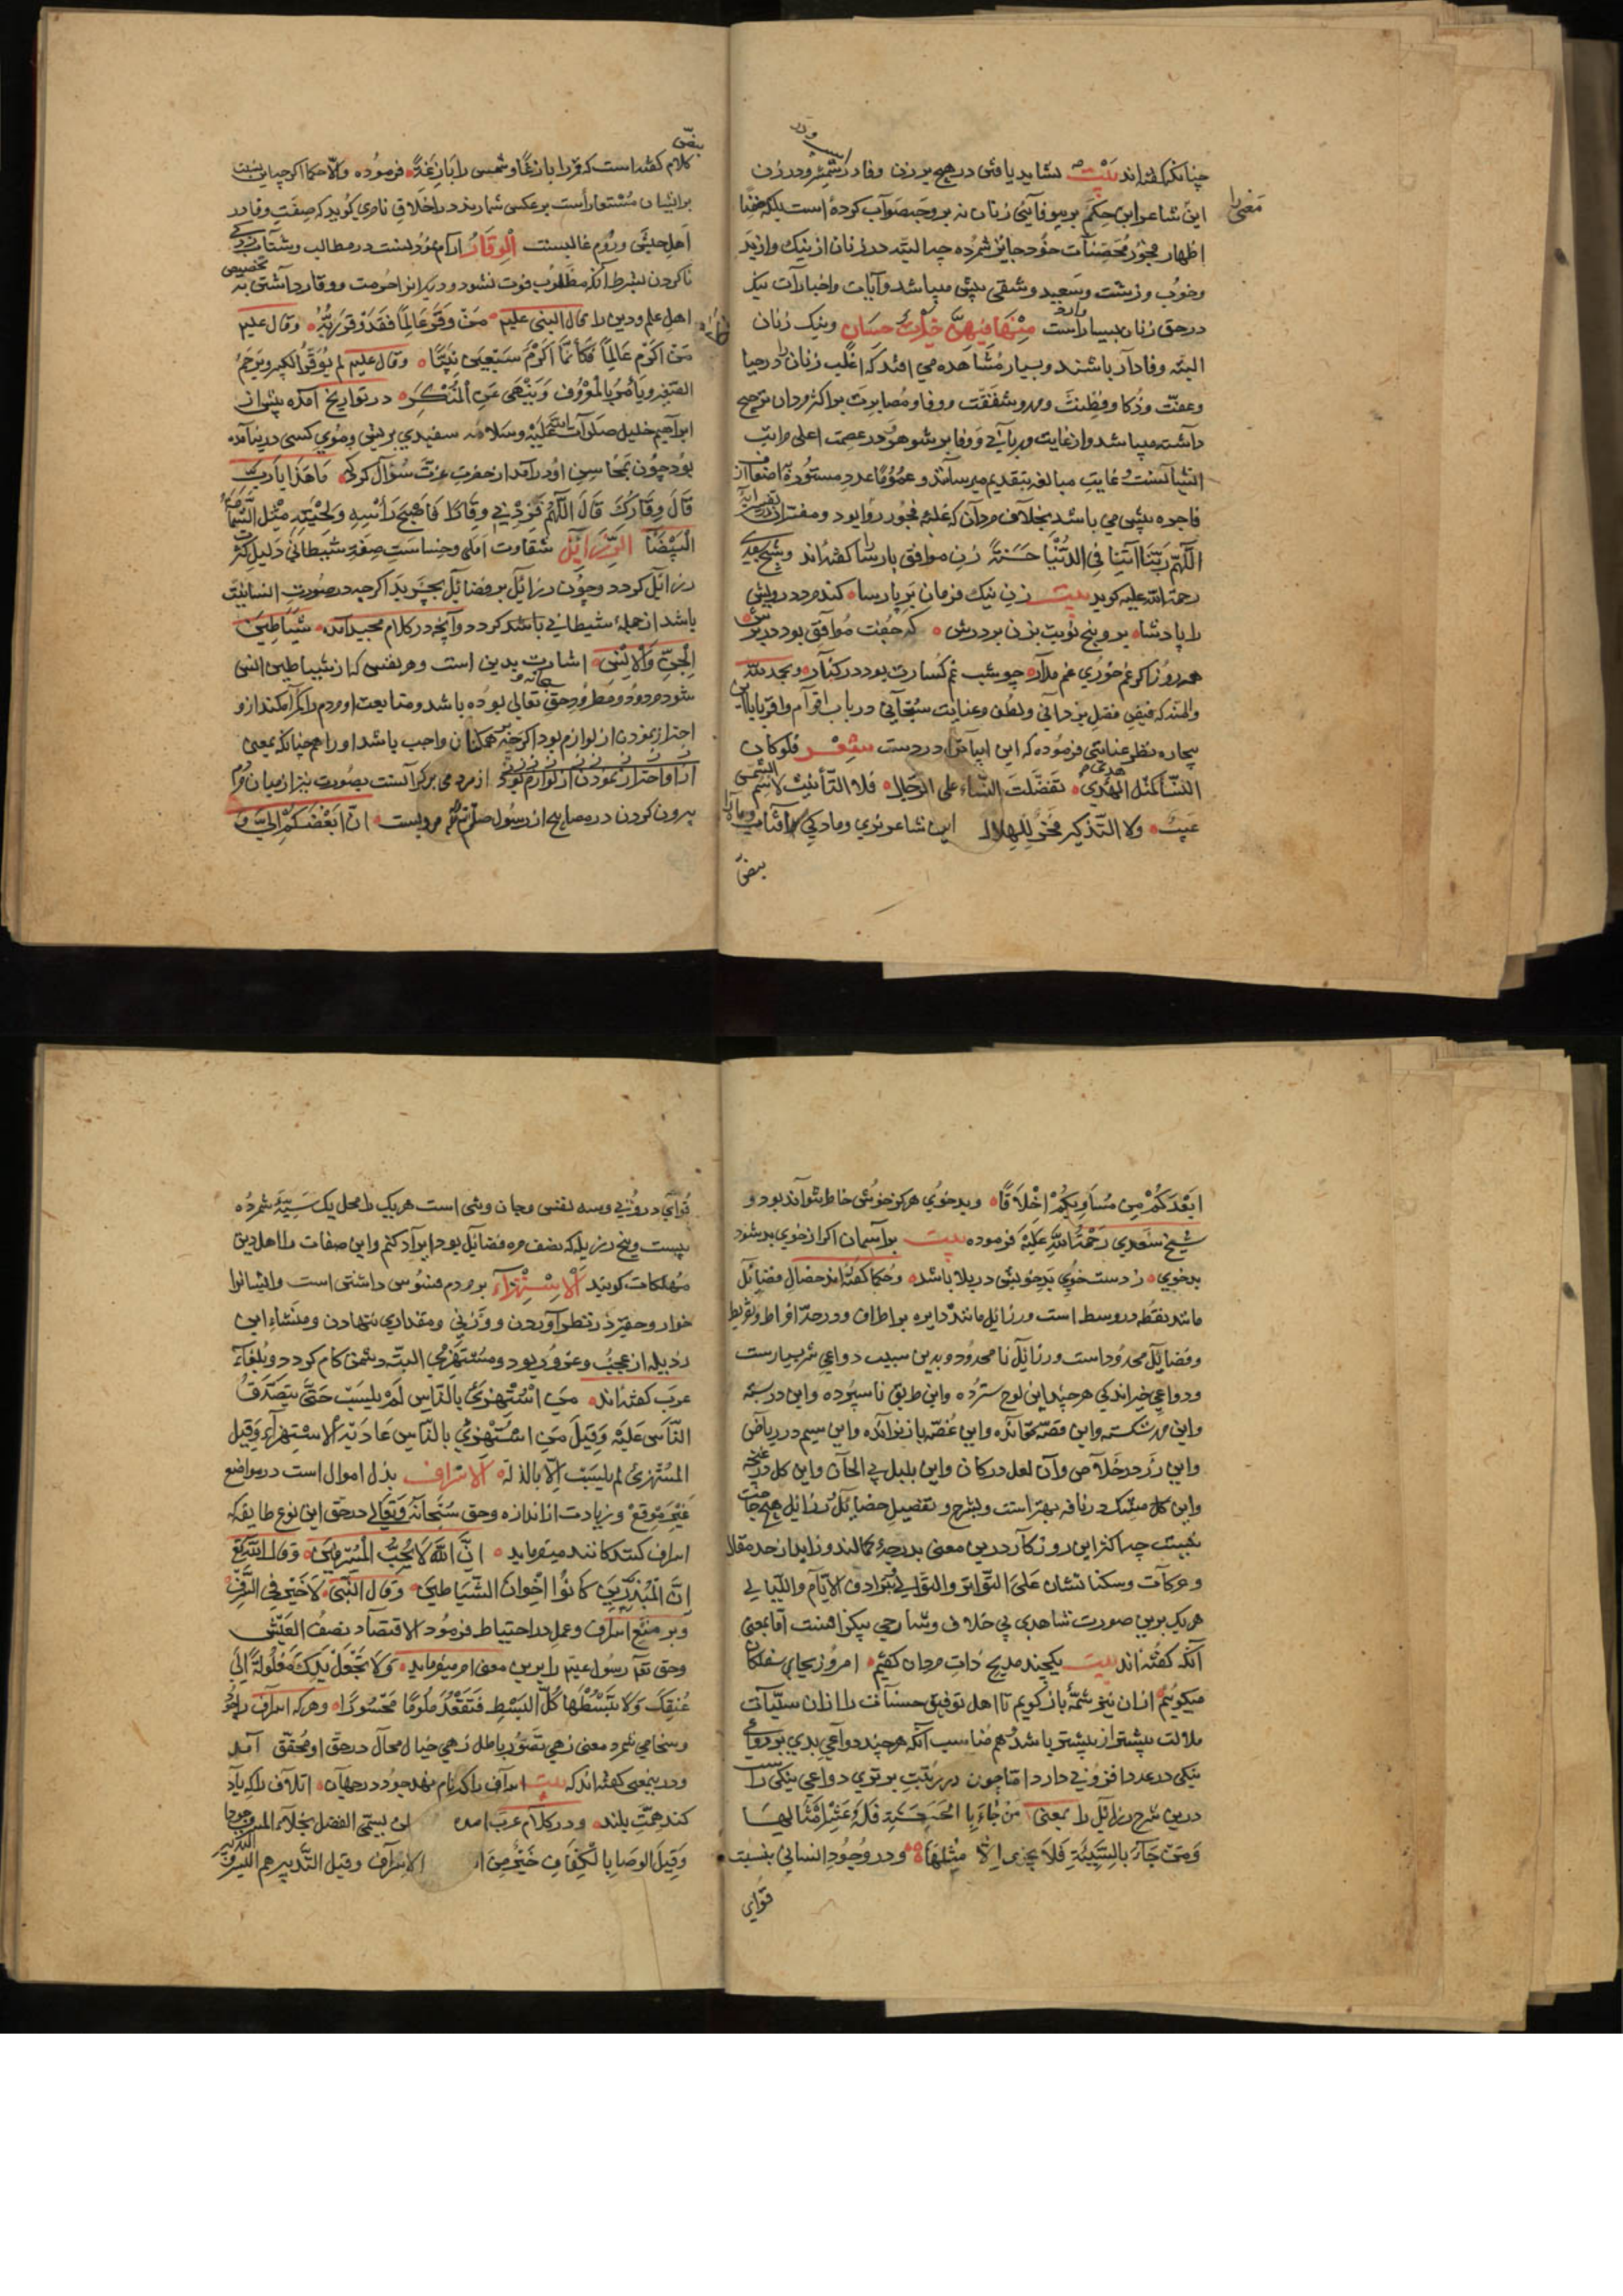 چنانکه گفته‌اند بیت نشاید یافتن در هیچ برزن وفا در اسب و در شمشیر و در زن
این شاعر این حکم بر بیوفائی زنان نه بر وجه صواب کرده است بلکه
اظهار فجور محصنات خود جایز شمرده چه البته در زنان از نیک و از بد
وخوب و زشت وسعید وشقی بیش میباشد وآیات واخبارات نیک
در حق زنان بسیار وارد است فیهن خیرات حسان ونیک زنان
البته وفادار باشند وبسیار مشاهده می افتد که اغلب زنان را در حیا
وعفت وذکا وفطنت ومهر وشفقت ووفا ومصابرت بر اکثر مردان ترجیح
داشته میباشد واز غایت مهربانی و وفا بر شوهر در عصمت اعلی مراتب
فاجره بیش می باشد بخلاف مردان که غلبه فجور را بود
اللهم ربنا آتنا فی الدنیا حسنة زن موافق پارسا را گفته‌اند وشیخ سعدی
رحمة الله علیه گوید بیت زن نیک فرمان بر پارسا کند مرد درویش
را پادشا برو پنج نوبت بزن بر درش که جفت موافق بود در برش
همه روز اگر غم خوری غم مدار چو شب غم گسارت بود در کنار وبحمد الله
والمنه که فیض فضل یزدانی ولطف وعنایت سبحانی در باب اقوام واقربا با این
بیچاره نظر عنایتی فرموده که این ابیات در دست شعر فلو کان
النساء کمثل هذی تفضلت النساء علی الرجال فلا التأنیث لاسم الشمس
عیب ولا التذکیر فخر للهلال این شاعر نری ومادگی آفتاب وماه را
بعضی
معنی را
کلام گفته است که قمر را بازغا وشمس را بازغة فرموده والا حکما اگر چه این نسبت
بر ایشان مستعار است بر عکس شمارند در اخلاق ناصری گوید که صفت وفا در
اهل حبش وروم غالبست الوقار آرام نمودنست در مطالب وشتاب زدگی
ناکردن بشرط آنکه مطلوب فوت نشود ودیگر از حرمت ووقار داشتن به تخصیص
اهل علم ودین را قال النبی علیم من وقر عالما فقد وقر ربه وقال علیم
من اکرم عالما فکأنما اکرم سبعین نبیا وقال علیم لم یوقر الکبیر ویرحم
الصغیر ویأمر بالمعروف وینهی عن المنکر در تواریخ آمده پیش از
ابراهیم خلیل صلوات الله علیه وسلامه سفیدی بر ریش وموی کسی در نیامده
بود چون بمحاسن او در آمد از حضرت عزت سؤال کرد که ما هذا یا رب
قال وقارک قال اللهم فزدنی وقارا فاصبح رأسه ولحیته مثل الثغامة
البیضا الرذائل شقاوت اصلی وخساست صفت شیطانی دلیل کثرت
رذائل گردد وچون رذائل بر فضائل بچربد اگر چه در صورت انسانیت
باشد از جمله شیطانی باشد گردد وآنچه در کلام مجید آمده شیاطین
الجن والانس اشارت بدین است وهر نفسی که از شیاطین انس
شود مردود ومطرود حق سبحانه وتعالی بوده باشد ومتابعت او مردم را گمراه کند از و
احتراز نمودن از لوازم بود اگر چه بر همکنان واجب باشد او را همچنانکه بمعنی
بیرون کردن در مصابیح از رسول صلی الله علیه مرویست ان ابغضکم الی و
ابعدکم من مساویکم اخلاقا وبدخوی هرگز خوش خاطر نتواند بود و
شیخ سعدی رحمة الله علیه فرموده بیت بر آسمان اگر از خوی بد شود
بدخوی ز دست خوی بد خویش در بلا باشد وحکما گفته‌اند خصال فضائل
مانند نقطه در وسط است ورذائل مانند دایره بر اطراف ودر حد افراط وتفریط
وفضائل محدود است ورذائل نامحدود وبدین سبب دواعی شر بسیارست
ودواعی خیر اندکی هر چند این لوح سترده واین طریق ناسپرده واین در بسته
واین مهر شکسته واین قصه نخوانده واین غصه باز نرانده واین سیم در ریاض
واین زر در خلاص وآن لعل در کان واین بلبل بی الحان واین گل در غنچه
واین کل مشک در نافه بهتر است وبشرح وتفصیل خصایل رذائل هیچ حاجت
نیست چه اکثر این روزگار درین معنی بدرجه کمالند وزاید از حد مقال
وحرکات وسکنات شان علی التواتر والتوالی بترادف الایام واللیالی
هر یک برین صورت شاهدی بی خلاف وشارحی بیگزافست اما بمعنی
آنکه گفته‌اند بیت یکچند مدیح ذات مردان گفتیم امروز بجای سفلگان
میگوئیم از آن نیز شمه باز گویم تا اهل توفیق حسنات را از آن سیئات
ملالت بیشتر از بیشتر باشد هم مناسب آنکه هر چند دواعی بدی بر دواعی
نیکی در عدد افزونی دارد اما چون در رتبت برتری دواعی نیکی راست
درین شرح رذائل را بمعنی من جاء بالحسنة فله عشر امثالها
ومن جاء بالسیئة فلا یجزی الا مثلها ودر وجود انسانی بنسبت
قوای
قوای درونی وسه نفس وجان وتنی است هر یک را محل یک سیئه شمرده
بیست وپنج رذیله که نصف مر فضائل بود ایراد کنم واین صفات را اهل دین
مهلکات گویند الاستهزاء بر مردم فسوس داشتن است وایشانرا
خوار وحقیر در نظر آوردن ووزنی ومقداری ننهادن ومنشاء این
رذیله از عجب وغرور بود ومستهزی البته دشمن کام گردد وبلغاء
عرب گفته‌اند من استهزئ بالناس لم یلبث حتی یتصرف
الناس علیه وقیل من استهزئ بالناس عادیة الاستهزاء وقیل
المستهزئ لم یلبث الا بالذلة الاسراف بذل اموال است در مواضع
غیر موقع وزیادت از اندازه وحق سبحانه وتعالی در حق این نوع طایفه که
اسراف کنندگانند میفرماید ان الله لا یحب المسرفین وقال الله تع
ان المبذرین کانوا اخوان الشیاطین وقال النبی لا خیر فی السرف
وبر منع اسراف وعمل بر احتیاط فرمود الاقتصاد نصف العیش
وحق تع رسول علیم را برین معنی امر میفرماید ولا تجعل یدک مغلولة الی
عنقک ولا تبسطها کل البسط فتقعد ملوما محسورا وهر که اسراف را جود
وسخا می شمرد معنی زهی تصور باطل زهی خیال محال در حق او محقق آمد
ودر بنمعنی گفته‌اند که بیت اسراف را که نام نهد جود در جهان اتلاف را که یاد
کند همت بلند ودر کلام عرب آمده
وقیل الوصایا بالکفاف خیر من الاسراف وقیل التدبیر هم